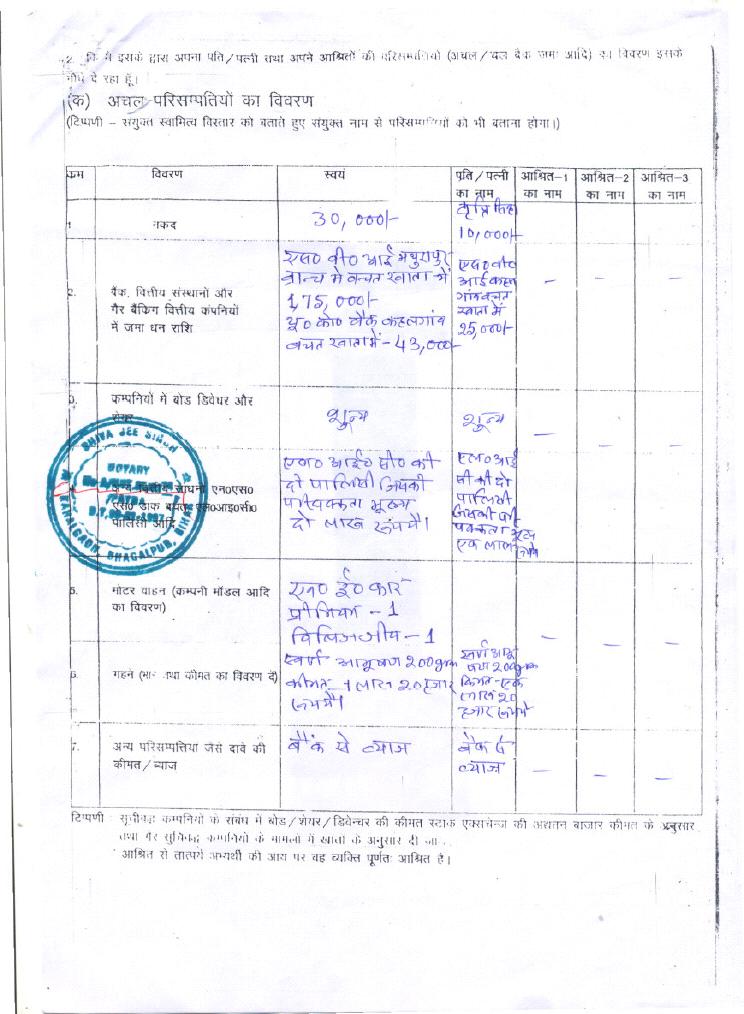 2. कि मैं इसके द्वारा अपना पति/पत्नी तथा अपने आश्रितों की परिसम्पतियों (अचल/चल बैंक जमा आदि) का विवरण इसके
नीचे दे रहा हूँ।
(क) अचल परिसम्पतियों का विवरण
(टिप्पणी – संयुक्त स्वामित्व विस्तार को बताते हुए संयुक्त नाम से परिसम्पतियों को भी बताना होगा।)
क्रम विवरण स्वयं पति/पत्नी का नाम आश्रित–1 का नाम आश्रित–2 का नाम आश्रित–3 का नाम
1. नकद 30,000/-
10,000/-
2. बैंक, वित्तीय संस्थानो और
गैर बैंकिग वित्तीय कंपनियों
में जमा धन राशि
एस० बी० आई मथुरापुर
ब्रान्च मे बचत खाता में
1,75,000/-
यू० को० बैंक कहलगांव
बचत खाता में - 43,000/-
एस० बी०
आई कहल
गांव बचत
खाता में
25,000/-
– – –
3. कम्पनियों मे बोड डिवेंधर और
शेयर
शून्य शून्य – – –
4. अन्य वित्तीय साधनों एन०एस०
एस० डाक बचत, एल०आइ०सी०
पालिसी आदि
एल० आई० सी० की
दो पालिसी जिसकी
परिपक्कता मूल्य
दो लाख रूपये।
एल० आई
सी की दो
पालिसी
जिसकी परि
पक्कता मूल्य
एक लाख रूपये
– – –
SHIVA JEE SINGH
NOTARY
KAHALGAON, BHAGALPUR, BIHAR
5. मोटर वाहन (कम्पनी मॉडल आदि
का विवरण)
एन० ई० कार
प्रीमियर - 1
विलिजजीप - 1
– – –
6. गहने (भार तथा कीमत का विवरण दें)
स्वर्ण आभूषण 200 gram
कीमत - 1 लाख 20 हजार
रूपये।
स्वर्ण आभू
षण 200 gram
किमत - एक
लाख 20
हजार रूपये
7. अन्य परिसम्पत्तिया जैसे दावे की
कीमत/ब्याज
बैंक से व्याज
बैंक से
व्याज
– – –
टिप्पणी : सूचीबद्ध कम्पनियों के संबंध में बोड/शेयर/डिवेन्चर की कीमत स्टाक एक्सचेन्ज की अद्यतन बाजार कीमत के अनुसार
तथा गैर सुचिबद्ध कम्पनियों के मामलों में खाता के अनुसार दी जा
आश्रित से तात्पर्य अभ्यर्थी की आय पर वह व्यक्ति पूर्णतः आश्रित है।